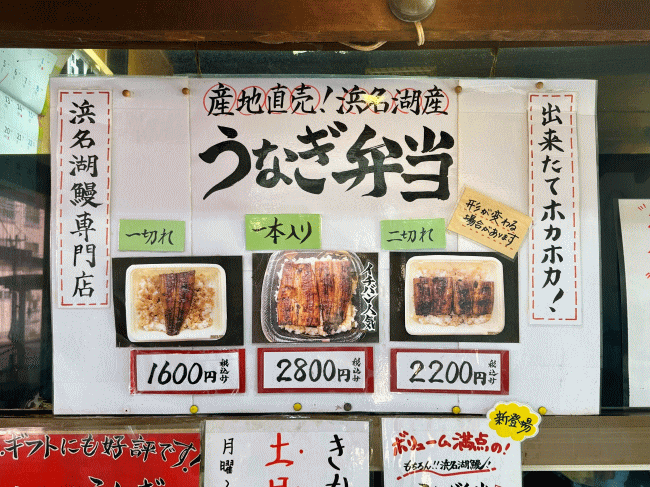 産地直売!浜名湖産
うなぎ弁当
浜名湖鰻専門店
出来たてホカホカ!
形が変わる
場合があります
一切れ
一本入り
二切れ
イチバン人気
1600円税込み
2800円税込み
2200円税込み
ギフトにも好評です!
月曜
土
新登場
ボリューム満点の!
もちろん!!浜名湖鰻!